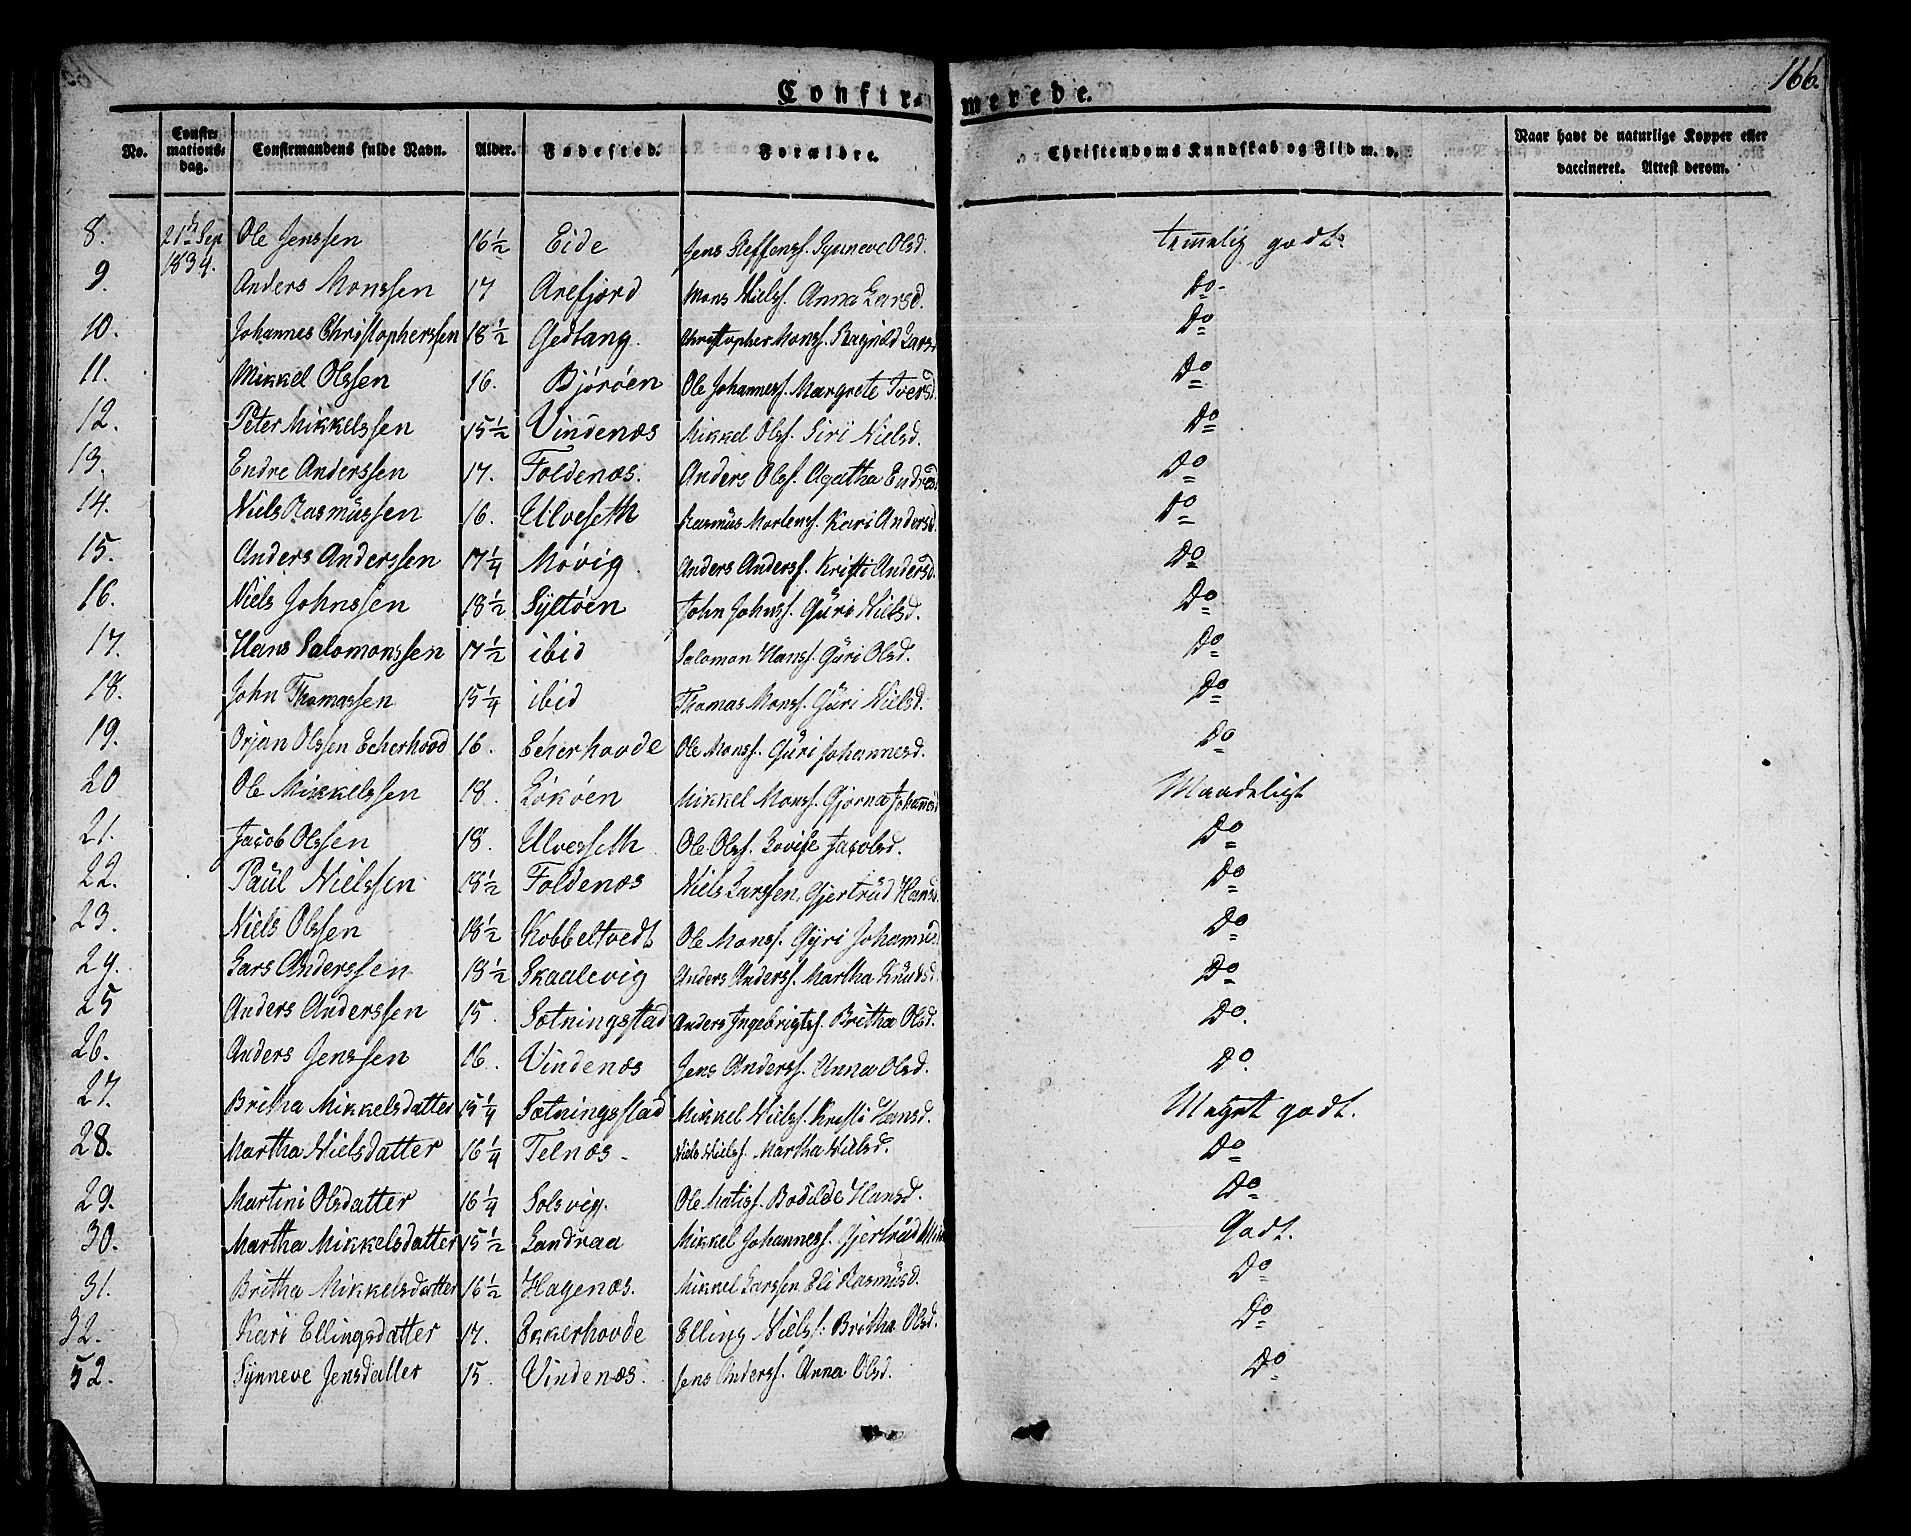 166.
Confirmerede.
No. Confirmationsdag. Confirmandens fulde Navn. Alder. Fødested. Forældre. Christendoms Kundskab og Flid m. v. Naar havt de naturlige Kopper eller vaccineret. Attest derom.
8. 21de Sep 1834. Ole Jenssen 16 1/2 Eide Jens Steffenss. Synneve Olsd. temmelig godt.
9. Anders Monssen 17 Arefjord Mons Nielss. Anna Larsd. Do
10. Johannes Christopherssen 18 1/2 Gedtang. Christopher Monss. Ragnild Larsd Do
11. Mikkel Olssen 16. Björöen Ole Johanness. Margrete Iversd. Do
12. Peter Mikkelssen 15 1/2 Vindenæs Mikkel Olss. Siri Nielsd. Do
13. Endre Anderssen 17. Foldenæs. Anders Olss. Agatha Endresd Do
14. Niels Rasmüssen 16. Ulveseth Rasmüs Mortenss. Kari Andersd. Do
15. Anders Anderssen 17 1/4 Mövig. Anders Anderss. Kristi Andersd. Do
16. Niels Johnssen 18 1/2 Syltöen John Johnss. Güri Nielsd. Do
17. Hans Salomonssen 17 1/2 ibid Salomon Hanss. Güri Olsd. Do
18. John Thomassen 15 1/4 ibid Thomas Monss. Güri Nielsd. Do
19. Orjan Olssen Echerhovd 16. Echerhovde Ole Monss. Güri Johannesd. Do
20 Ole Mikkelssen 18. Lököen Mikkel Monss. Gjorna Johannesd Maadeligt
21. Jacob Olssen 18. Ulvesseth Ole Olss. Lovise Jacobsd. Do
22. Paül Nielssen 18 1/2 Foldenæs Niels Larssen. Gjertrüd Hansd. Do
23. Niels Olssen 18 1/2 Kobbeltvedt Ole Monss. Gyri Johannesd. Do
24. Lars Anderssen 18 1/2 Skaalevig Anders Anderss. Martha Knüdsd. Do
25 Anders Anderssen 15. Sætningstad Anders Ingebrigts. Britha Olsd. Do.
26. Anders Jenssen 16. Vindenæs Jens Anderss. Anna Olsd. Do.
27. Britha Mikkelsdatter 15 1/4 Sætningsstad Mikkel Nielss. Kristi Hansd. Meget godt.
28. Martha Nielsdatter 16 1/4 Telnæs. Niels Nielss. Martha Nielsd. Do
29. Martini Olsdatter 16 1/4 Solsvig. Ole Matiss. Bodilde Hansd. Do
30. Martha Mikkelsdatter 15 1/2 Landraa Mikkel Johanness. Gjertrüd Godt.
31. Britha Mikkelsdatter 16 1/2 Hagenæs. Mikkel Larssen Eli Rasmüsd. Do
32. Kari Ellingsdatter 17. Ekkerhovde Elling Nielss. Britha Olsd. Do
52. Synneve Jensdatter 15. Vindenæs. Jens Anderss. Anna Olsd. Do